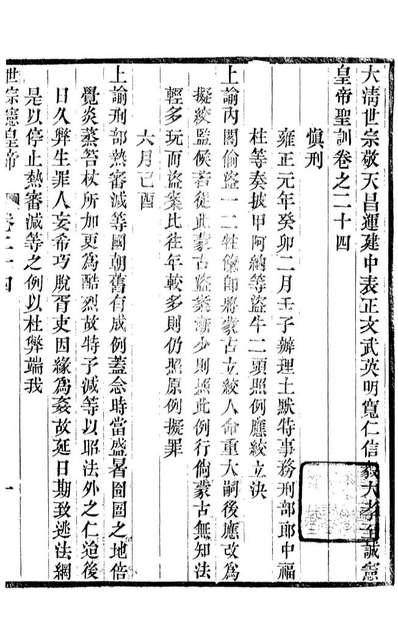 大清世宗敬天昌運建中表正文武英明寬仁信毅大孝至誠憲
皇帝聖訓卷之二十四
慎刑
雍正元年癸卯二月壬子辦理土默特事務刑部郎中福
柱等奏披甲阿納等盜牛二頭照例應絞立決
上諭內閣偷盜一二牲餼卽將蒙古立絞人命重大嗣後應改為
擬絞監候若從此蒙古盜案漸少則照此例行倘蒙古無知法
輕多玩而盜案比往年較多則仍照原例擬罪
六月己酉
上諭刑部熱審減等國朝舊有成例蓋念時當盛暑囹圄之地倍
覺炎蒸笞杖所加更為酷烈故特予減等以昭法外之仁迨後
日久弊生罪人妄希巧脫胥吏因緣為姦故延日期致逃法網
是以停止熱審減等之例以杜弊端我
世宗憲皇帝
卷二十四
一